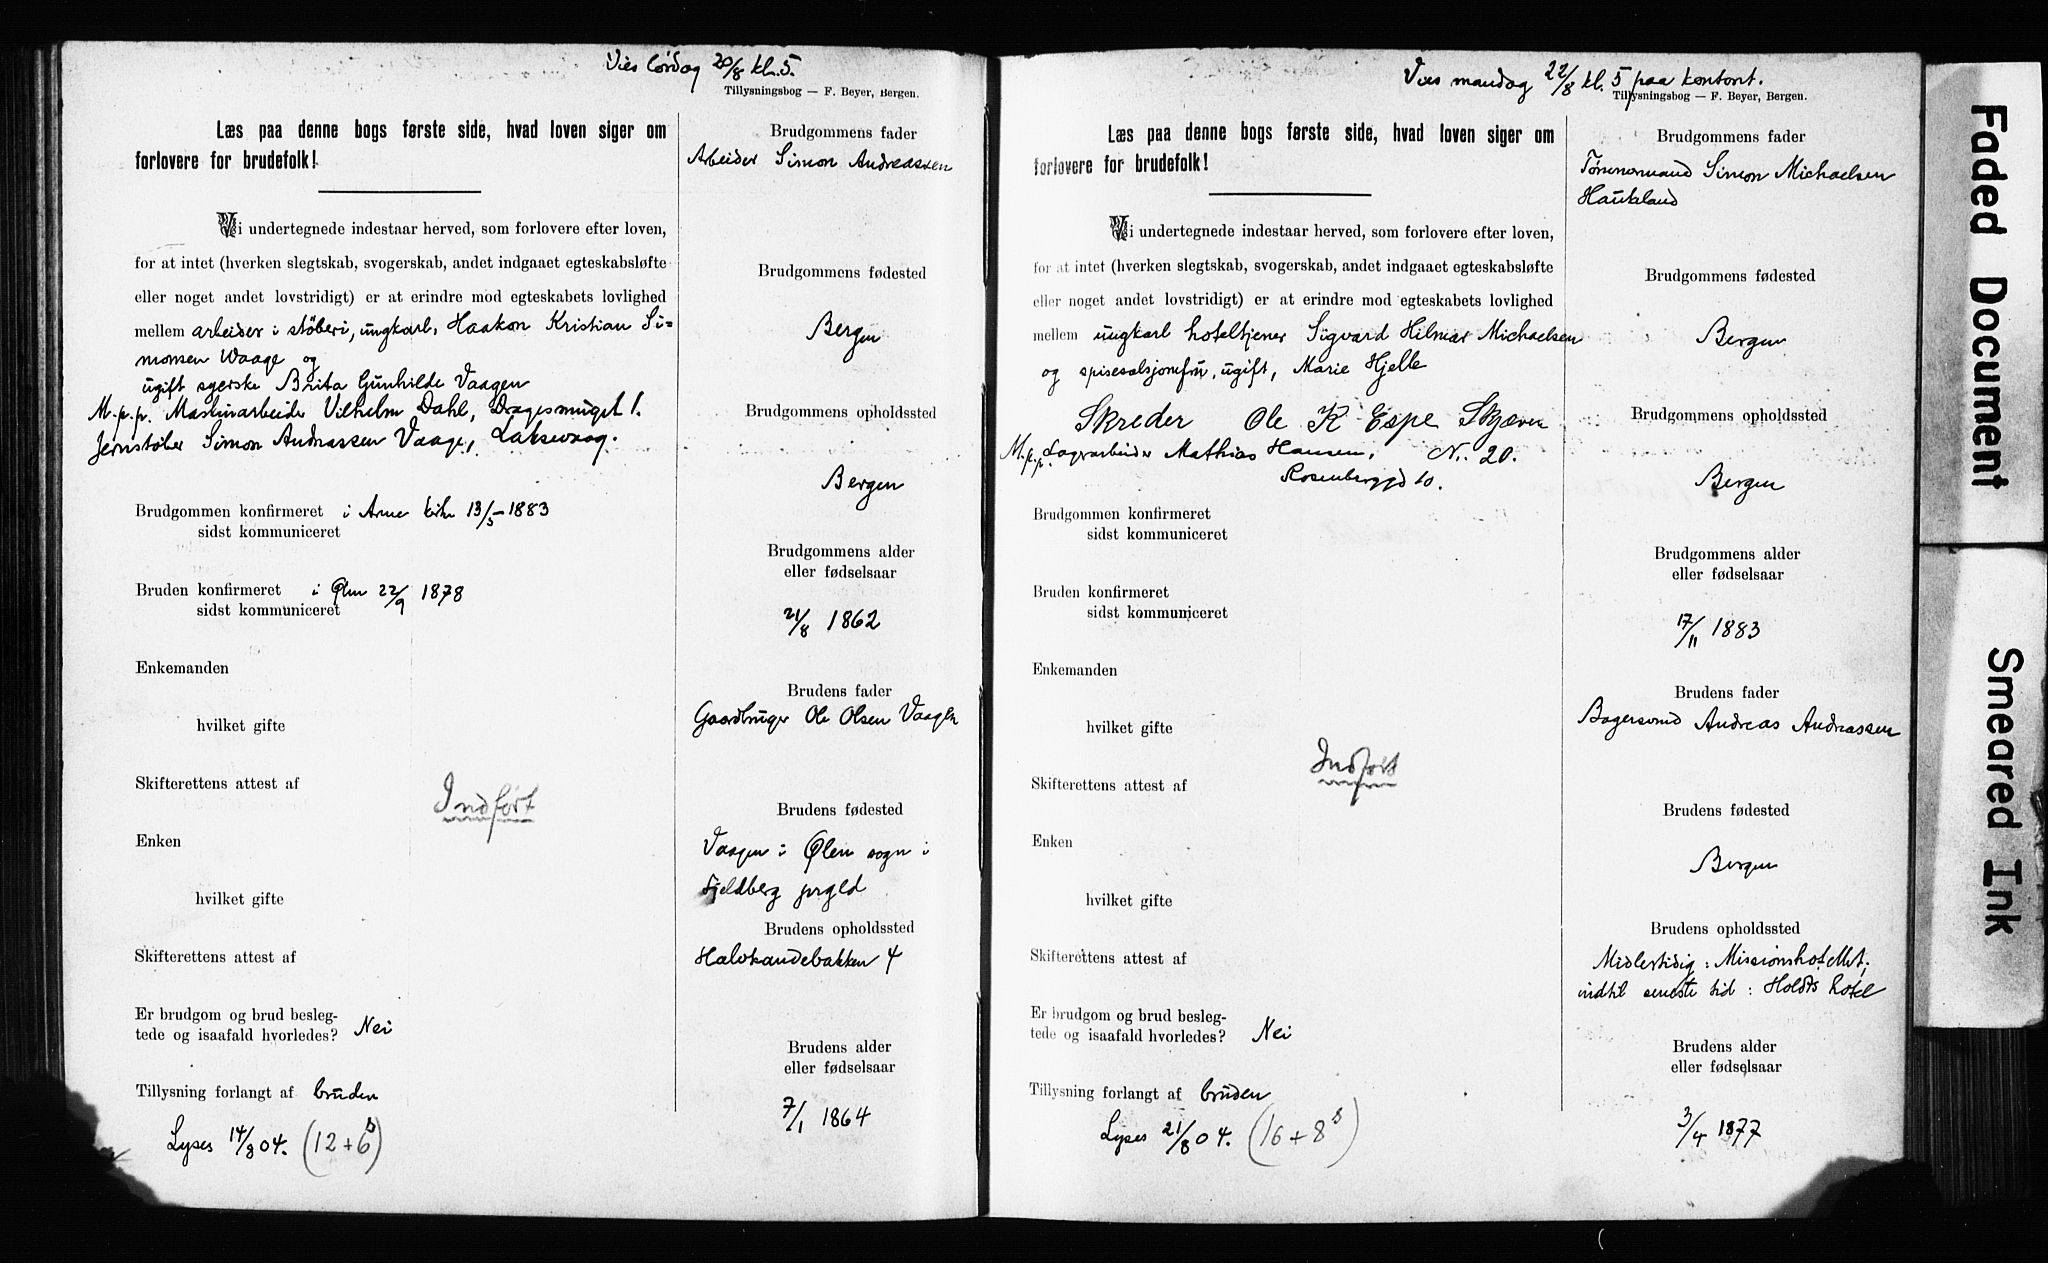 Vies lørdag 20/8 kl. 5.
Tillysningsbog — F. Beyer, Bergen.
Læs paa denne bogs første side, hvad loven siger om
forlovere for brudefolk!
Vi undertegnede indestaar herved, som forlovere efter loven,
for at intet (hverken slegtskab, svogerskab, andet indgaaet egteskabsløfte
eller noget andet lovstridigt) er at erindre mod egteskabets lovlighed
mellem arbeider i støberi, ungkarl, Haakon Kristian Si=
monsen Waage og
ugift syerske Brita Gunhilde Vaagen
M. p. p. Maskinarbeider Vilhelm Dahl, Dragesmuget 1.
Jernstøber Simon Andreassen Vaage, Laksevaag.
Brudgommen konfirmeret i Arne kirke 13/5 1883
sidst kommuniceret
Bruden konfirmeret i Ølen 22/9 1878
sidst kommuniceret
Enkemanden
hvilket gifte
Skifterettens attest af
Indført
Enken
hvilket gifte
Skifterettens attest af
Er brudgom og brud besleg-
tede og isaafald hvorledes? Nei
Tillysning forlangt af bruden
Lyses 14/8 04. (12 + 6 s)
Brudgommens fader
Arbeider Simon Andreassen
Brudgommens fødested
Bergen
Brudgommens opholdssted
Bergen
Brudgommens alder
eller fødselsaar
21/8 1862
Brudens fader
Gaardbruger Ole Olsen Vaagen
Brudens fødested
Vaagen i Ølen sogn i
Fjeldberg prgld
Brudens opholdssted
Halvkandebakken 4
Brudens alder
eller fødselsaar
7/1 1864
Vies mandag 22/8 kl. 5 paa kontoret.
Tillysningsbog — F. Beyer, Bergen.
Læs paa denne bogs første side, hvad loven siger om
forlovere for brudefolk!
Vi undertegnede indestaar herved, som forlovere efter loven,
for at intet (hverken slegtskab, svogerskab, andet indgaaet egteskabsløfte
eller noget andet lovstridigt) er at erindre mod egteskabets lovlighed
mellem ungkarl hoteltjener Sigvard Hilmar Michaelsen
og spisesalsjomfru, ugift, Marie Hjelle
Skreder Ole K Espe Skjæven
M. p. p. Lagerarbeider Mathias Hansen, N. 20.
Rosenberggd 10.
Brudgommen konfirmeret
sidst kommuniceret
Bruden konfirmeret
sidst kommuniceret
Enkemanden
hvilket gifte
Indført
Skifterettens attest af
Enken
hvilket gifte
Skifterettens attest af
Er brudgom og brud besleg-
tede og isaafald hvorledes? Nei
Tillysning forlangt af bruden
Lyses 21/8 04. (16 + 8 s)
Brudgommens fader
Tømmermand Simon Michaelsen
Haukeland
Brudgommens fødested
Bergen
Brudgommens opholdssted
Bergen
Brudgommens alder
eller fødselsaar
17/11 1883
Brudens fader
Bagersvend Andreas Andreassen
Brudens fødested
Bergen
Brudens opholdssted
Midlertidig: Missionshotellet;
indtil seneste tid: Holdts hotel
Brudens alder
eller fødselsaar
3/4 1877
Faded Document
Smeared Ink